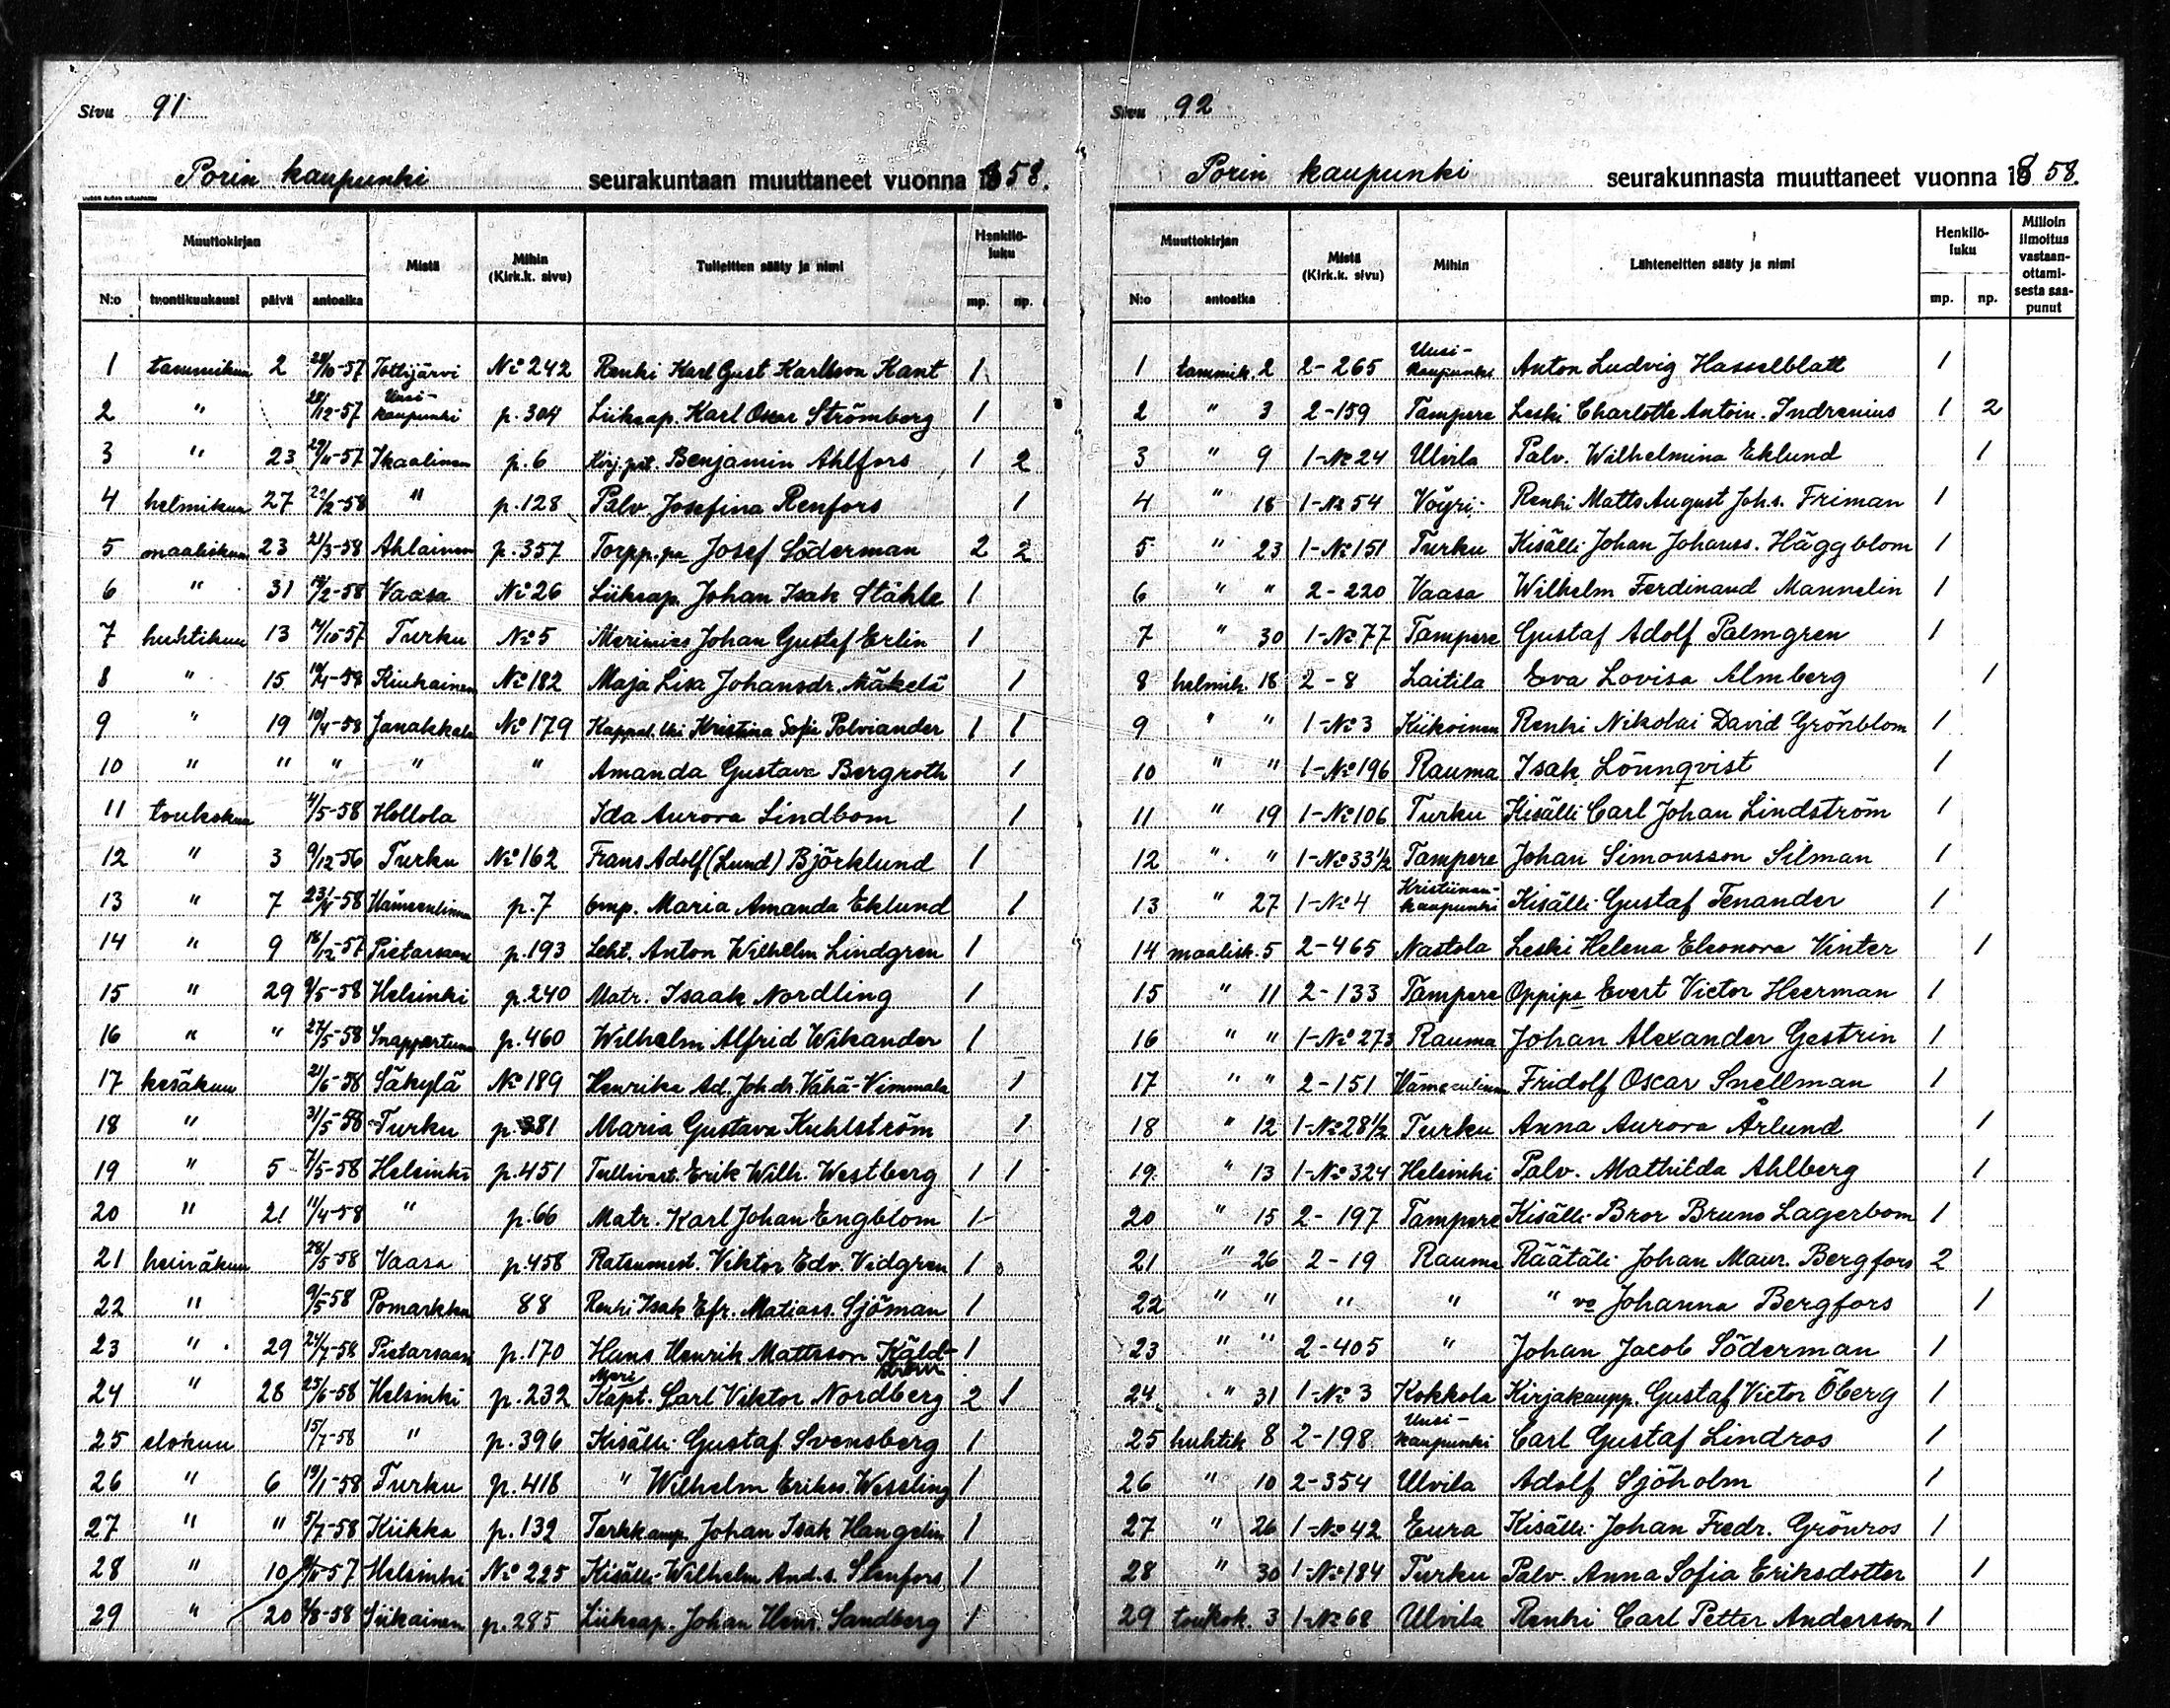 Sivu 91
Porin kaupunki seurakuntaan muuttaneet vuonna 1858.
Muuttokirjan Mistä Mihin (Kirk.k. sivu) Tulleitten sääty ja nimi Henkilö-luku
N:o tuontikuukausi päivä antoaika mp. np.
1 tammikuu 2 28/10-57 Tottijärvi No 242 Renki Karl Gust Karlsson Kant 1
2 " 28/12-57 Uusi-kaupunki p. 304 Liiksap. Karl Oscar Strömberg 1
3 " 23 29/11-57 Ikaalinen p. 6 Kirj.pit. Benjamin Ahlfors 1 2
4 helmikuu 27 22/2-58 " p. 128 Palv. Josefina Renfors 1
5 maaliskuu 23 21/3-58 Ahlainen p. 357 Torpp.pa Josef Söderman 2 2
6 " 31 /2-58 Vaasa No 26 Liiksap. Johan Isak Ståhle 1
7 huhtikuu 13 14/10-57 Turku No 5 Merimies Johan Gustaf Erlin 1
8 " 15 10/4-58 Kiukainen No 182 Maja Lisa Johansdr. Mäkelä 1
9 " 19 10/4-58 Janakkala No 179 Kappal. lki Kristina Sofia Polviander 1 1
10 " " " " " Amanda Gustava Bergroth 1
11 toukokuu 4/5-58 Hollola Ida Aurora Lindbom 1
12 " 3 9/12-56 Turku No 162 Frans Adolf (Lund) Björklund 1
13 " 7 23/4-58 Hämeenlinna p. 7 Omp. Maria Amanda Eklund 1
14 " 9 18/12-57 Pietarsaari p. 193 Leht. Anton Wilhelm Lindgren 1
15 " 29 9/5-58 Helsinki p. 240 Matr. Isaak Nordling 1
16 " " 27/5-58 Snappertuna p. 460 Wilhelm Alfrid Wikander 1
17 kesäkuu 21/6-58 Säkylä No 189 Henrika Ad. Joh.dr. Vähä-Vimmala 1
18 " 31/5-58 Turku p. 381 Maria Gustava Kuhlström 1
19 " 5 7/5-58 Helsinki p. 451 Tullivart. Erik Wilh. Westberg 1 1
20 " 21 11/4-58 " p. 66 Matr. Karl Johan Engblom 1
21 heinäkuu 28/5-58 Vaasa p. 458 Ratsumest. Viktor Edv. Vidgren 1
22 " 9/5-58 Pomarkku 88 Renki Isak Efr. Matiass. Sjöman 1
23 " 29 24/7-58 Pietarsaari p. 170 Hans Henrik Mattsson Käld-
24 " 28 25/6-58 Helsinki p. 232 Meri Kapt. Carl Viktor Nordberg 2 1
25 elokuu 15/7-58 " p. 396 Kisälli Gustaf Svensberg 1
26 " 6 19/1-58 Turku p. 418 " Wilhelm Erikss. Wessling 1
27 " " 5/7-58 Kiikka p. 132 Tarkk.amp. Johan Isak Hangelin 1
28 " 10 /11-57 Helsinki No 225 Kisälli Wilhelm And.s. Stenfors 1
29 " 20 /8-58 Siikainen p. 285 Liiksap. Johan Henr. Sandberg 1
Sivu 92
Porin kaupunki seurakunnasta muuttaneet vuonna 1858.
Muuttokirjan Mistä (Kirk.k. sivu) Mihin Lähteneitten sääty ja nimi Henkilö-luku Milloin ilmoitus vastaan-ottami-sesta saa-punut
N:o antoaika mp. np.
1 tammik. 2 2-265 Uusi-kaupunki Anton Ludvig Hasselblatt 1
2 " 3 2-159 Tampere Leski Charlotte Antoin. Indrenius 1 2
3 " 9 1-No 24 Ulvila Palv. Wilhelmina Eklund 1
4 " 18 1-No 54 Vöyri Renki Matts August Joh.s. Friman 1
5 " 23 1-No 151 Turku Kisälli Johan Johanss. Häggblom 1
6 " " 2-220 Vaasa Wilhelm Ferdinand Mannelin 1
7 " 30 1-No 77 Tampere Gustaf Adolf Palmgren 1
8 helmik. 18 2-8 Laitila Eva Lovisa Almberg 1
9 " " 1-No 3 Kiikoinen Renki Nikolai David Grönblom 1
10 " " 1-No 196 Rauma Isak Lönnqvist 1
11 " 19 1-No 106 Turku Kisälli Carl Johan Lindström 1
12 " " 1-No 33½ Tampere Johan Simonsson Silman 1
13 " 27 1-No 4 Kristiinan-kaupunki Kisälli Gustaf Tenander 1
14 maalisk. 5 2-465 Nastola Leski Helena Eleonora Vinter 1
15 " 11 2-133 Tampere Oppipa Evert Victor Heerman 1
16 " " 1-No 273 Rauma Johan Alexander Gestrin 1
17 " " 2-151 Hämeenlinna Fridolf Oscar Snellman 1
18 " 12 1-No 28½ Turku Anna Aurora Årlund 1
19 " 13 1-No 324 Helsinki Palv. Mathilda Ahlberg 1
20 " 15 2-197 Tampere Kisälli Bror Bruno Lagerbom 1
21 " 26 2-19 Rauma Räätäli Johan Maur. Bergfors 2
22 " " " " " vo Johanna Bergfors 1
23 " " 2-405 " Johan Jacob Söderman 1
24 " 31 1-No 3 Kokkola Kirjakaupp. Gustaf Victor Öberg 1
25 huhtik 8 2-198 Uusi-kaupunki Carl Gustaf Lindros 1
26 " 10 2-354 Ulvila Adolf Sjöholm 1
27 " 26 1-No 42 Eura Kisälli Johan Fredr. Grönros 1
28 " 30 1-No 184 Turku Palv. Anna Sofia Eriksdotter 1
29 toukok. 3 1-No 68 Ulvila Renki Carl Petter Andersson 1